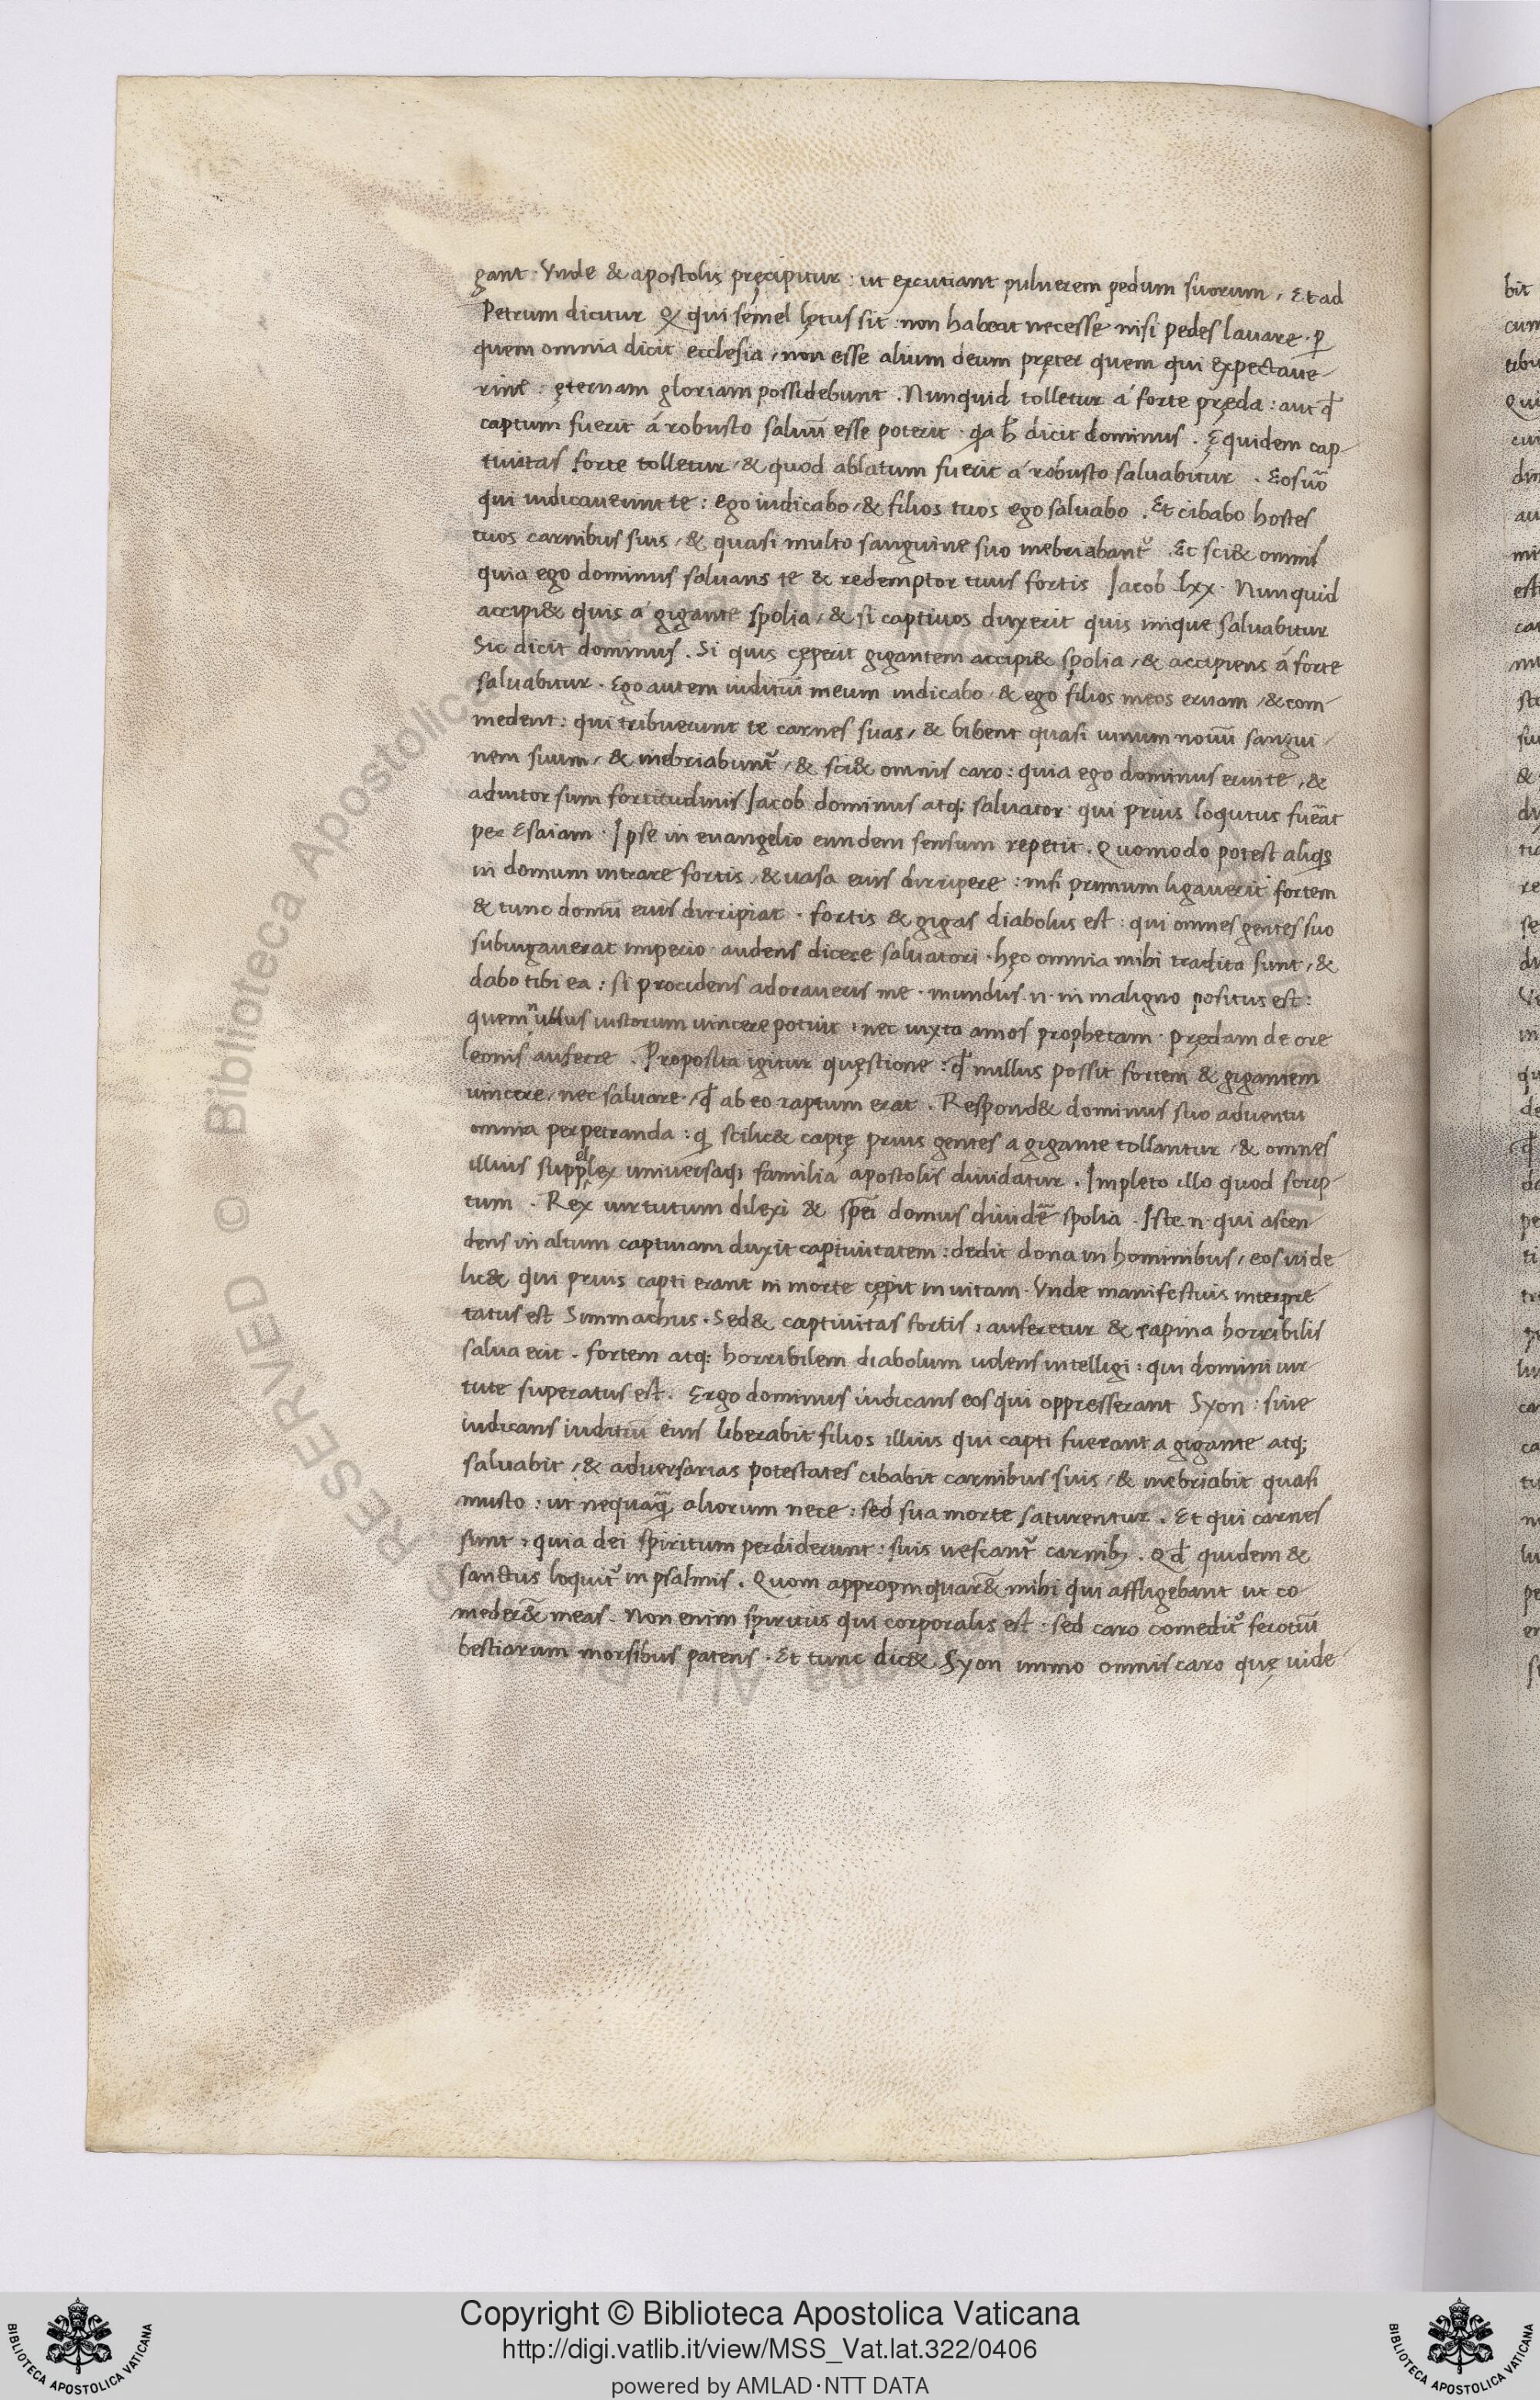 gant · Vnde & apostolis pręcipitur : ut excutiant puluerem pedum suorum , Et ad
Petrum dicitur ꝙ qui semel lotus sit : non habeat necesse nisi pedes lauare · ꝑ
quem omnia dicit ecclesia , non esse alium deum pręter quem qui expectaue
rint : ęternam gloriam possidebunt . Nunquid tolletur á forte pręda : aut qđ
captum fuerit á robusto saluū esse poterit · dicit dominus . Ęquidem cap
tiuitas forte tolletur , & quod ablatum fuerit á robusto saluabitur . Eos uō
qui iudicauerunt te : ego iudicabo , & filios tuos ego saluabo . Et cibabo hostes
tuos carnibus suis , & quasi multo sanguine suo inebriabant᷑ . Et sci& omnis
quia ego dominus saluans te & redemptor tuus fortis Jacob lxx · Nunquid
accipi& quis á gigante spolia , & si captiuos duxerit quis inique saluabitur
Sic dicit dominus . Si quis cęperit gigantem accipi& spolia , & accipiens á forte
saluabitur . Ego autem iuditiū meum iudicabo · & ego filios meos eruam , & com
medent : qui tribuerunt te carnes suas , & bibent quasi uinum nouū sangui
nem suum , & inebriabunt᷑ , & sci& omnis caro : quia ego dominus erui te , &
adiutor sum fortitudinis Jacob dominus atq; saluator · qui prius loqutus fuēat
per Esaiam · Ipse in euangelio eundem sensum repetit . Quomodo potest aliqs
in domum intrare fortis , & uasa eius diripere : nisi primum ligauerit fortem
& tunc domū eius diripiat · fortis & gigas diabolus est : qui omnes gentes suo
subiugauerat imperio · audens dicere saluatori · hęc omnia mihi tradita sunt , &
dabo tibi ea : si procidens adoraueris me · mundus · n · in maligno positus est :
quem nullus iustorum uincere potuit , nec iuxta amos prophetam · prędam de ore
leonis auferre . Proposita igitur quęstione : qđ nullus possit fortem & gigantem
uincere , nec saluare , qđ ab eo raptum erat . Respond& dominus suo aduentu
omnia perpetranda : scilic& captę prius gentes a gigante tollantur , & omnes
illius supplex uniuersaq; familia apostolis diuidatur . Impleto illo quod scrip
tum . Rex uirtutum dilexi & spēi domus diuidē spolia . Iste · n · qui ascen
dens in altum captiuam duxit captiuitatem : dedit dona in hominibus , eos uide
lic& qui prius capti erant in morte cępit in uitam · Vnde manifestius interpre
tatus est Simmachus . Sed & captiuitas fortis , auferetur & rapina horribilis
salua erit . fortem atq; horribilem diabolum uolens intelligi : qui domini uir
tute superatus est . Ergo dominus iudicans eos qui oppresserant Syon : siue
iudicans iuditiū eius liberabit filios illius qui capti fuerant a gigante atq;
saluabit , & aduersarias potestates cibabit carnibus suis , & inebriabit quasi
musto : ut nequaꝗ̄ aliorum nece : sed sua morte saturentur . Et qui carnes
sunt , quia dei spiritum perdiderunt : suis uescant᷑ carnib; . Qđ quidem &
sanctus loquit᷑ in psalmis . Quom appropinquar& mihi qui affligebant ut co
meder& meas . Non enim spiritus qui corporalis est : sed caro comedit᷑ ferotiū
bestiarum morsibus patens . Et tunc dic& Syon immo omnis caro quę uide